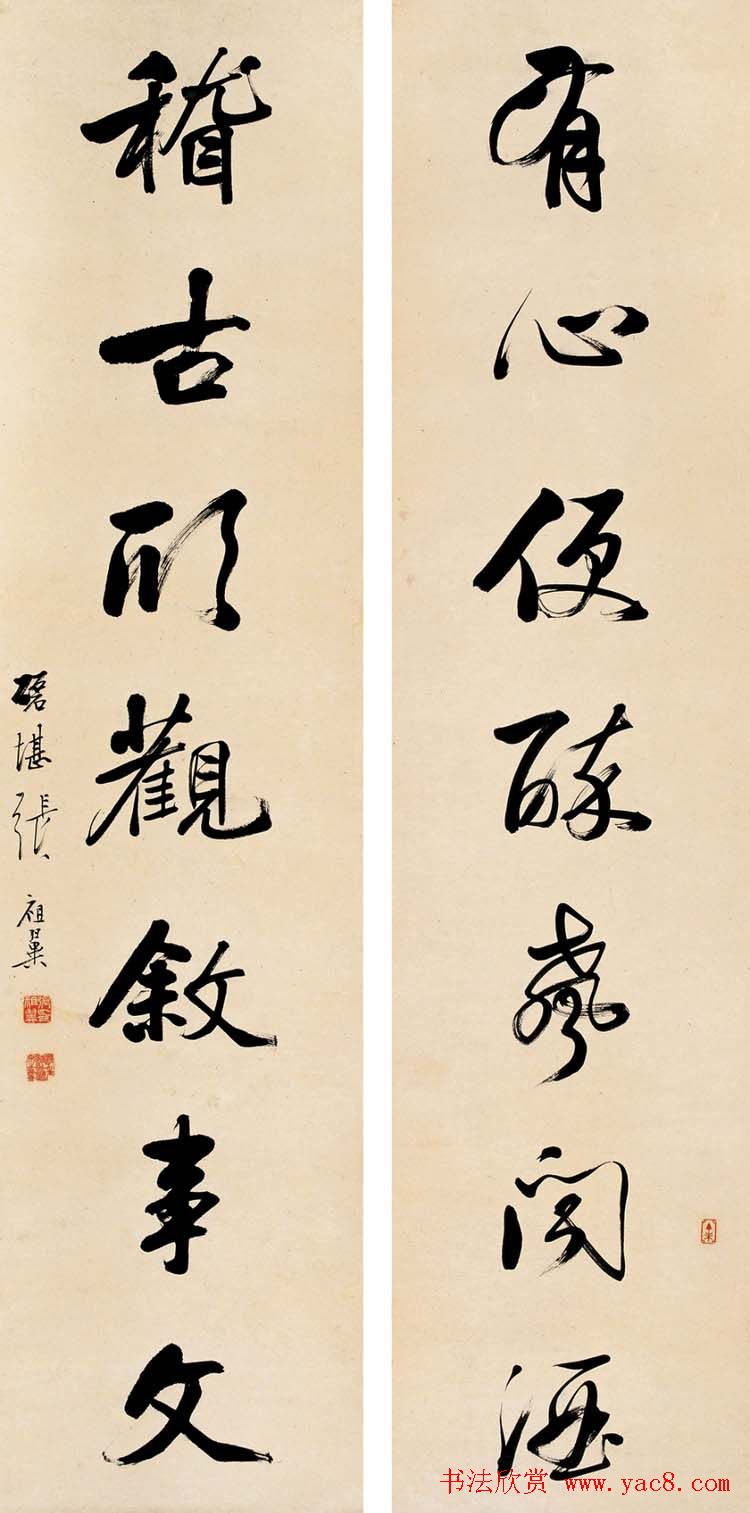 有心便醉聲聞酒
稽古所觀敘事文
磊堪張祖翼
书法欣赏 www.yac8.com